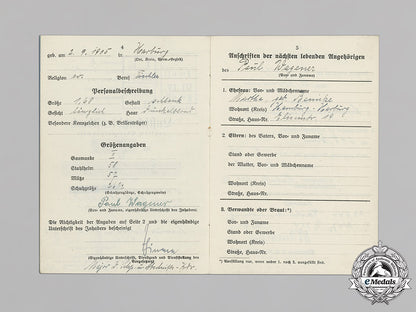 geb. am 2. 9. 1905 in Harburg
(Ort, Kreis, Verw.-Bezirk)
Religion ev. Beruf Tischler
Personalbeschreibung
Größe 1,68 Gestalt schlank
Gesicht länglich Haar
Besondere Kennzeichen (z. B. Brillenträger)
Größenangaben
Gasmaske I
Stahlhelm 58
Mütze 57
Schuhgröße
Paul Wagener
(Vor- und Zuname, eigenhändige Unterschrift des Inhabers)
Die Richtigkeit der Angaben auf Seite 2 und die eigenhändige
Unterschrift des Inhabers bescheinigt
5
Anschriften der nächsten lebenden Angehörigen
des Paul Wagener
(Vor- und Zuname)
1. Ehefrau: Vor- und Mädchenname
Martha geb.
Wohnort (Kreis) Hamburg-Harburg
Straße, Haus-Nr.
2. Eltern: des Vaters, Vor- und Zuname
Stand oder Gewerbe
der Mutter, Vor- und Mädchenname
Wohnort (Kreis)
Straße, Haus-Nr.
3. Verwandte oder Braut:*)
Vor- und Zuname
Stand oder Gewerbe
Wohnort (Kreis)
Straße, Haus-Nr.
*) Ausfüllung nur, wenn weder 1. noch 2. ausgefüllt sind.
eMedals